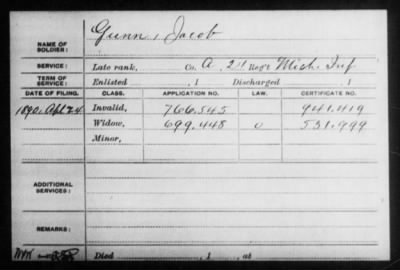 Gunn, Jacob
NAME OF SOLDIER:
SERVICE: Late rank, Co. A, 21 Reg't Mich. Inf
TERM OF SERVICE: Enlisted , 1 Discharged , 1
DATE OF FILING. CLASS. APPLICATION NO. LAW. CERTIFICATE NO.
1890. Apl. 24 Invalid, 766.545 941.419
Widow, 699.448 0 531.999
Minor,
ADDITIONAL SERVICES:
REMARKS:
Died , 1 , at